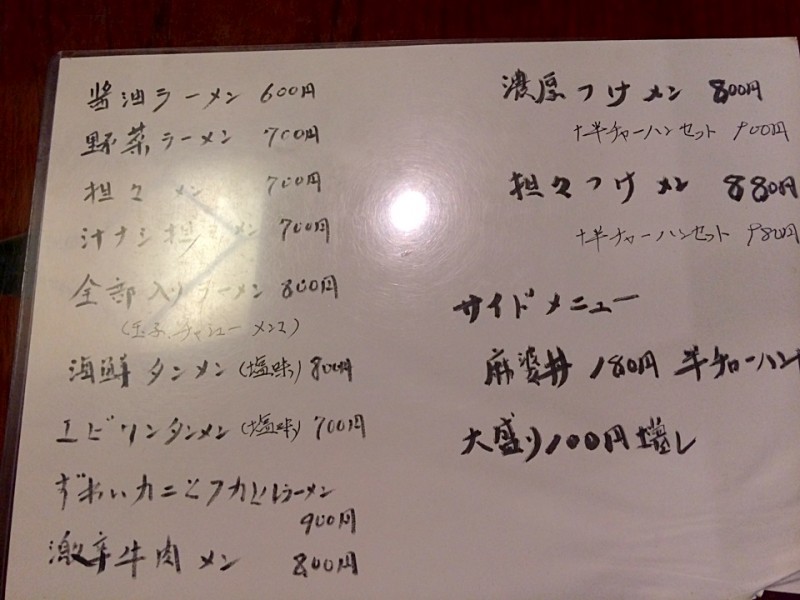 醤油ラーメン 600円
野菜ラーメン 700円
担々メン 700円
汁ナシ担々メン 700円
全部入りラーメン 800円
(玉子、チャシュー メンマ)
海鮮タンメン(塩味) 800円
エビワンタンメン(塩味) 700円
ずわいカニとフカヒレラーメン
900円
激辛牛肉メン 800円
濃厚つけメン 800円
+半チャーハンセット 900円
担々つけメン 880円
+半チャーハンセット 980円
サイドメニュー
麻婆丼 180円 半チャーハン
大盛り100円増し